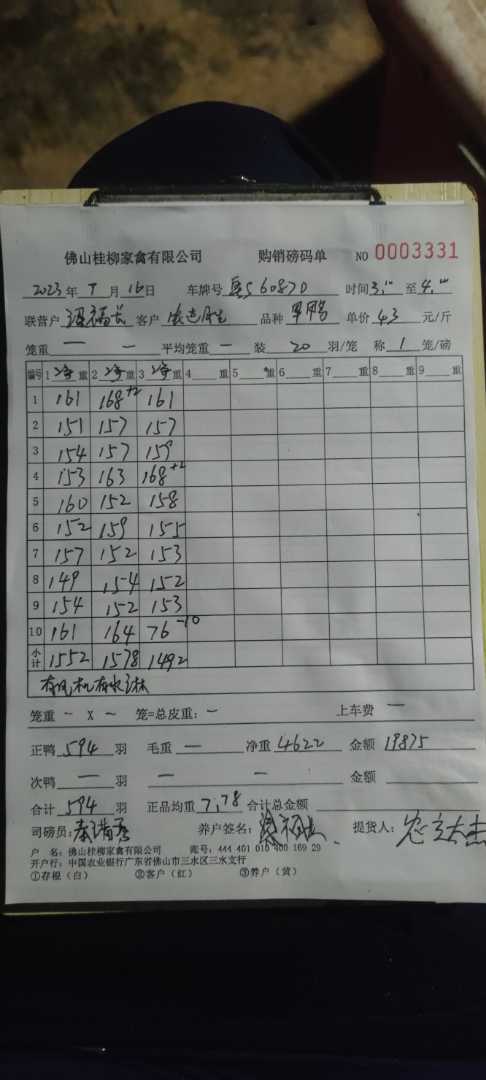 佛山桂柳家禽有限公司 购销磅码单 NO 0003331
2023年 9月16日 车牌号 粤S6087D 时间 3:00至4:00
联营户 客户 品种 单价 4.3 元/斤
笼重 — — 平均笼重 — 装 20 羽/笼 称 1 笼/磅
编号 1 净重 2 净重 3 净重 4 重 5 重 6 重 7 重 8 重 9 重
1 161 168+2 161
2 151 157 157
3 154 157 159
4 153 163 168+2
5 160 152 158
6 152 159 155
7 157 152 153
8 149 154 152
9 154 152 153
10 161 164 76-10
小计 1552 1578 1492
有风机有水
笼重 — X — 笼=总皮重: — 上车费 —
正鸭 594 羽 毛重 — 净重 4622 金额 19875
次鸭 — 羽 — — 金额
合计 594 羽 正品均重 7.78 合计总金额
司磅员: 养户签名: 提货人:
户 名: 佛山桂柳家禽有限公司 账号: 444 401 010 400 169 29
开户行: 中国农业银行广东省佛山市三水区三水支行
①存根(白) ②客户(红) ③养户(黄)